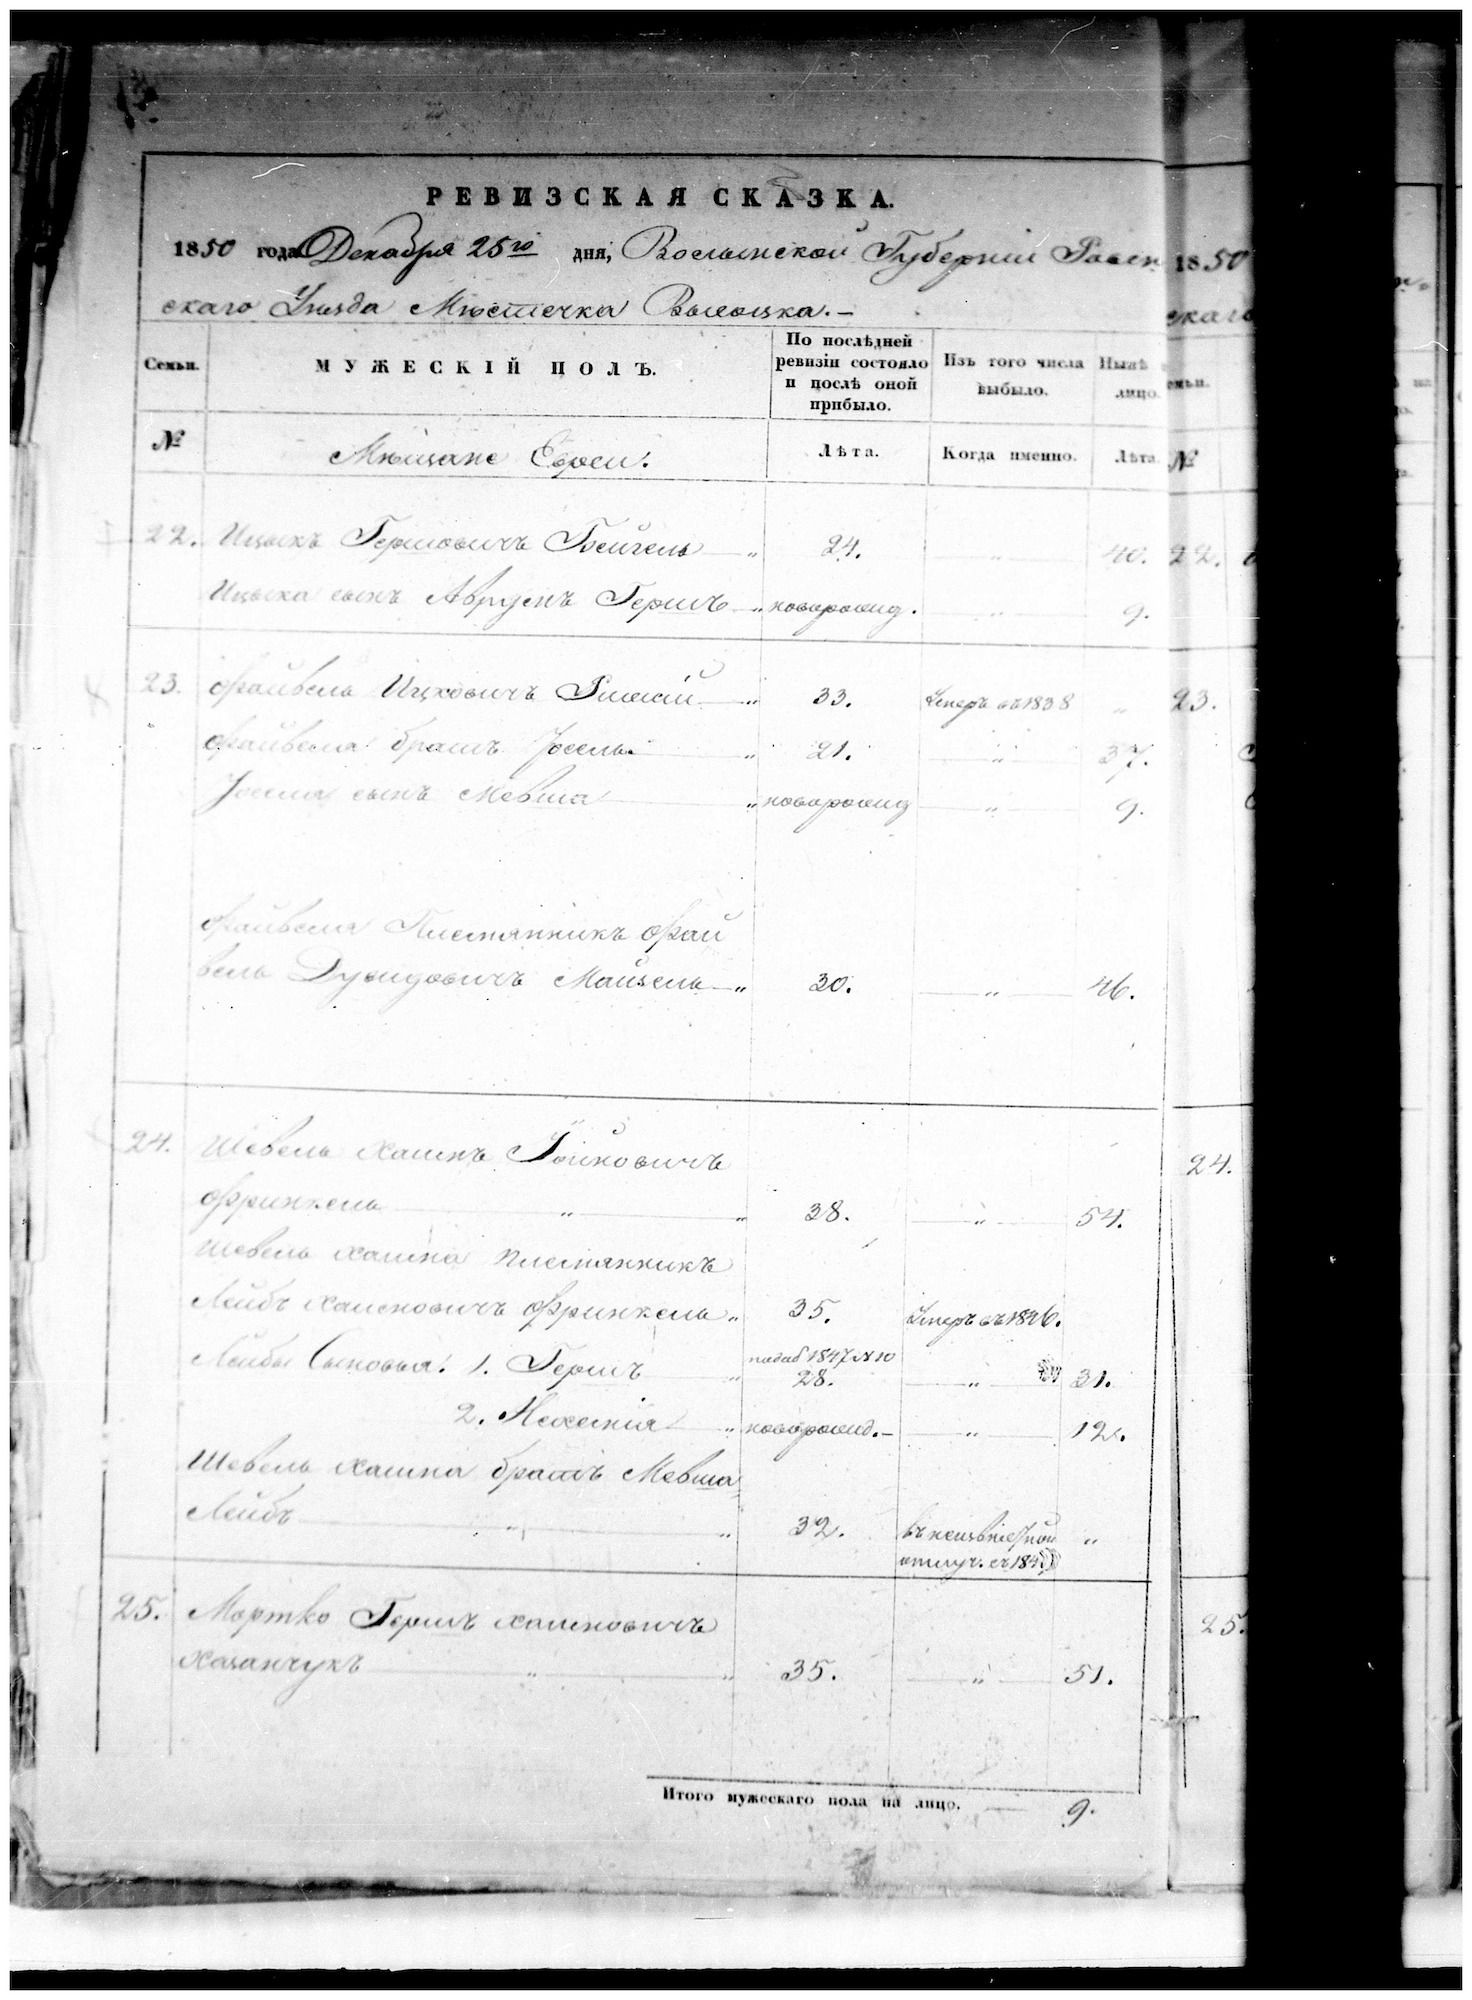 РЕВИЗСКАЯ СКАЗКА.
1850 года Декабря 25го дня, Волынской Губерніи Ровен 1850
скаго Уѣзда Мѣстечка Высоцка.— скаго
Семьи. МУЖЕСКІЙ ПОЛЪ. По послѣдней ревизіи состояло и послѣ оной прибыло. Изъ того числа выбыло. Нынѣ лицо.
№ Мѣщане Евреи. Лѣта. Когда именно. Лѣта №
22. Ицыкъ Гершовичъ — " 24. " 40. 22.
Ицыка сынъ Аврумъ Гершъ — " новорожд. " 9.
23. Файвель Ицковичъ — " 33. Умеръ въ 1838 " 23.
Файвеля братъ Іосель " 21. " 37.
Іоселя сынъ Мевша " новорожд " 9.
Файвеля Племянникъ Фай
вель Дувидовичъ Майзель — " 30. " 46.
24. Шевель Хаимъ Іойновичъ 24.
Фринкель " " 38. " 54.
Шевель Хаима племянникъ
Лейбъ Хаимовичъ Фринкель " 35. Умеръ въ 1846.
Лейбы Сыновья: 1. Гершъ " 1847 № 10
28. " 31.
2. Нехемія " новорожд.— " 12.
Шевель Хаима братъ Мевша
Лейбъ " " 32. въ неизвѣстной "
отлуч. съ 184
25. Мортко Гершъ Хаимовичъ 25.
Хазанчукъ " " 35. " 51.
Итого мужескаго пола на лицо. — 9.